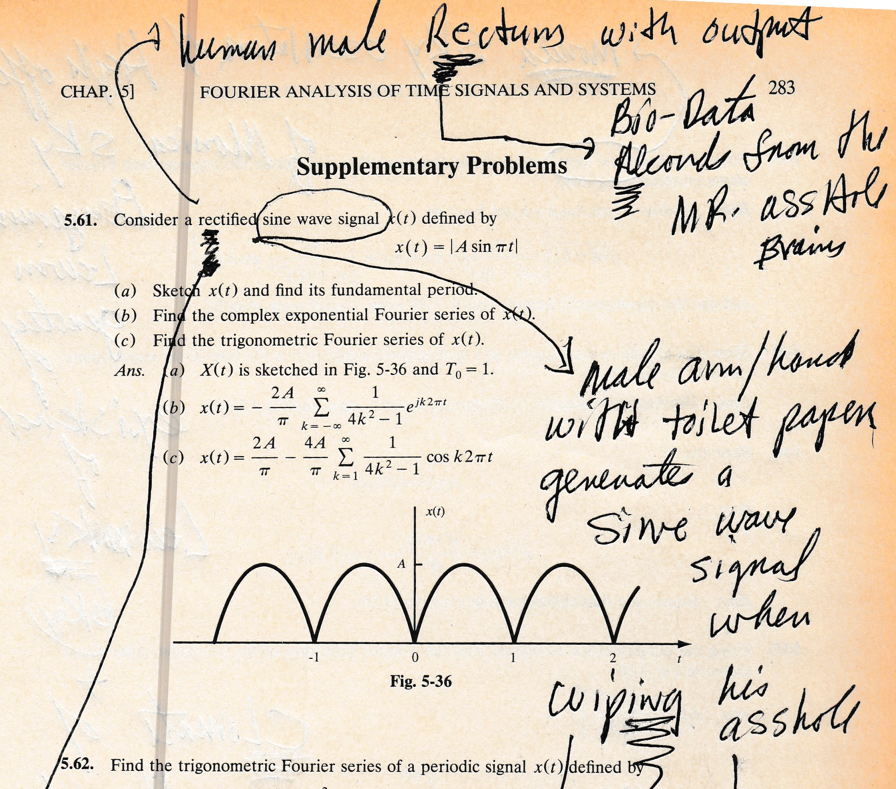 human male Rectums with output
CHAP. 5] FOURIER ANALYSIS OF TIME SIGNALS AND SYSTEMS 283
Bio-Data
Records from the
MR. assHole
Brains
Supplementary Problems
5.61. Consider a rectified sine wave signal x(t) defined by
x(t) = |A sin πt|
(a) Sketch x(t) and find its fundamental period.
(b) Find the complex exponential Fourier series of x(t).
(c) Find the trigonometric Fourier series of x(t).
Ans. (a) X(t) is sketched in Fig. 5-36 and T₀ = 1.
(b) x(t) = − 2A/π ∑_{k=−∞}^{∞} 1/(4k² − 1) e^{jk2πt}
(c) x(t) = 2A/π − 4A/π ∑_{k=1}^{∞} 1/(4k² − 1) cos k2πt
male arm/hand
with toilet paper
generates a
Sine wave
signal
when
wiping his
asshole
x(t)
A
-1 0 1 2 t
Fig. 5-36
5.62. Find the trigonometric Fourier series of a periodic signal x(t) defined by